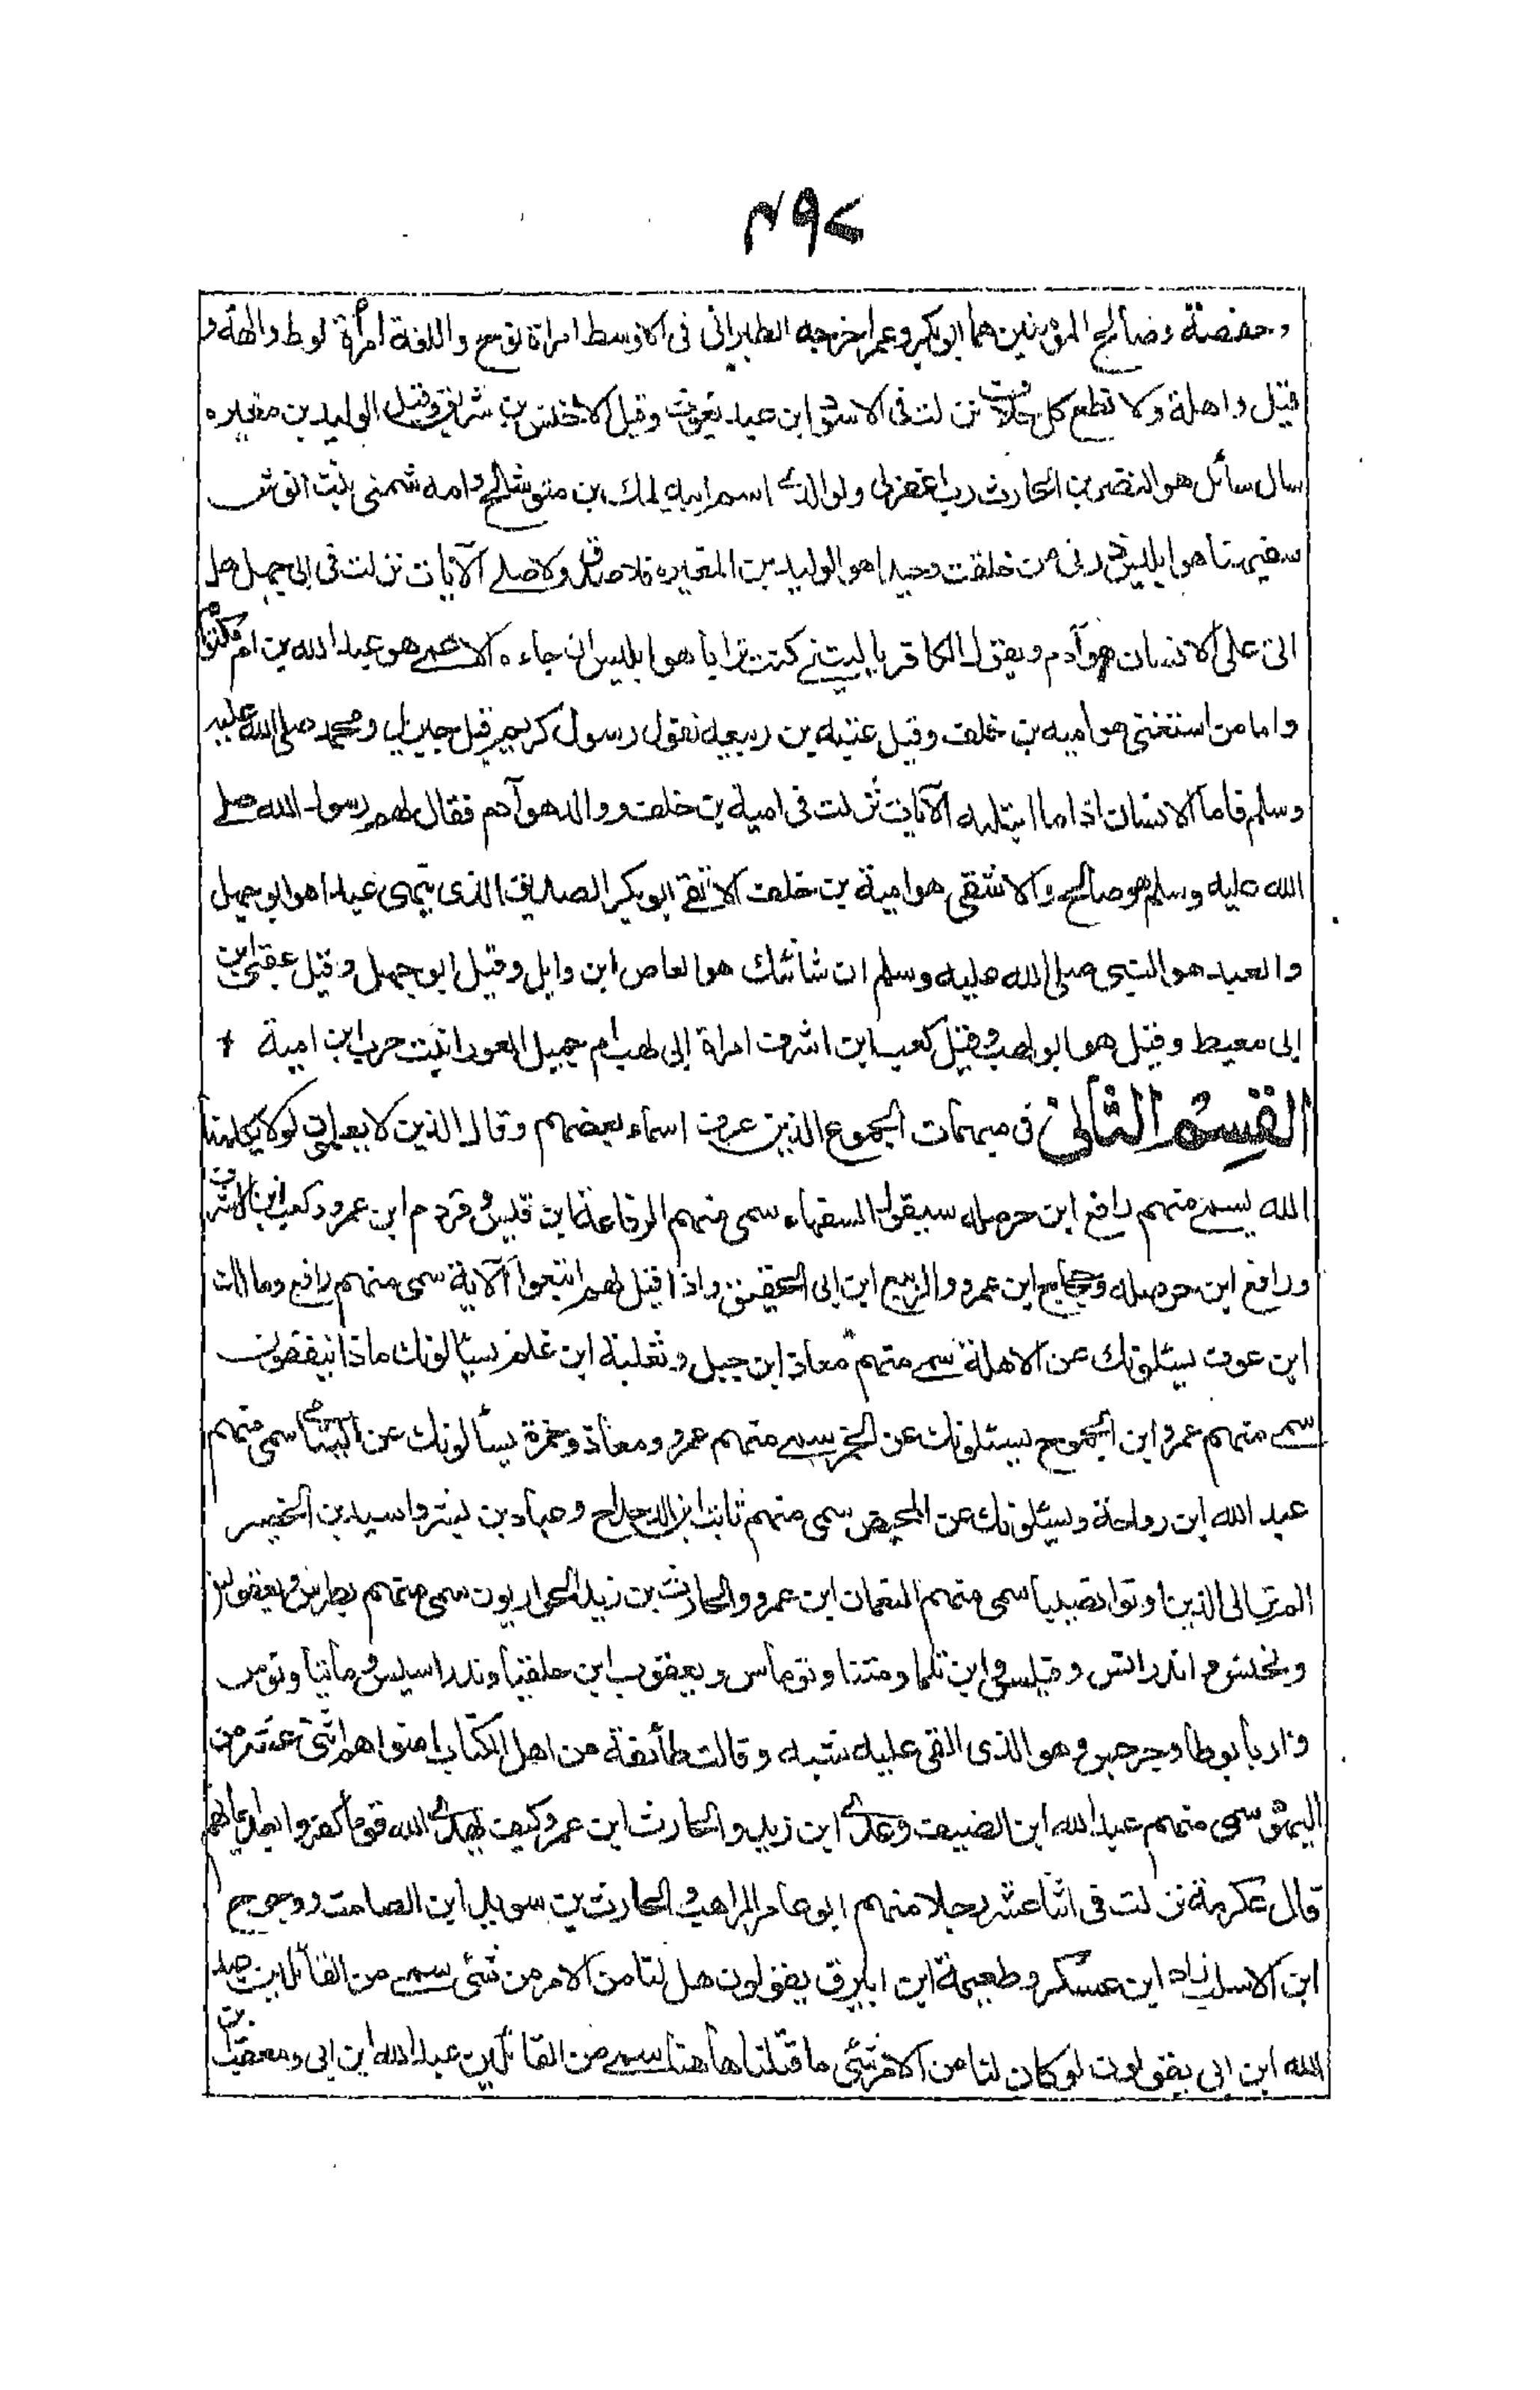 ٤٩٢
وحفصة وصالح المؤمنين هما ابو بكر وعمر اخرجه الطبرانى فى الاوسط امراة نوح والغة امرأة لوط والهة و
قيل واهلة ولا تطع كل حلاف نزلت فى الاسود ابن عبد يغوث وقيل الاخنس بن شريق وقيل الوليد بن مغيره
سال سائل هو النضر بن الحارث رب اغفرلى ولوالدى اسم ابيه لمك ابن متوشلخ وامه شمخى بنت انوش
سفيهنا هو ابليس ذرنى من خلقت وحيدا هو الوليد بن المغيره فلا صدق ولا صلى الآيات نزلت فى ابى جهل هل
اتى على الانسان هو آدم ويقول الكافر ياليتنى كنت ترابا هو ابليس ان جاءه الاعمى هو عبد الله بن ام مكتوم
واما من استغنى هو اميه بن خلف وقيل عتبه بن ربيعه لقول رسول كريم قيل جبريل ومحمد صلى الله عليه
وسلم فاما الانسان اذا ما ابتليه الآيات نزلت فى امية بن خلف ووالد هو آدم فقال لهم رسول الله صلى
الله عليه وسلم هو صالح والاشقى هو امية بن خلف الاتقى ابو بكر الصديق الذى ينهى عبدا هو ابو جهل
والعبد هو النبى صلى الله عليه وسلم ان شانئك هو العاص ابن وايل وقيل ابو جهل وقيل عقبى ابن
ابى معيط وقيل هو ابو لهب وقيل كعب ابن اشرف امراة ابى لهب ام جميل العورا بنت حرب ابن امية
القسم الثانى فى مبهمات الجموع الذين عرف اسماء بعضهم وقال الذين لا يعلمون لولا يكلمنا
الله يسمى منهم رافع ابن حرمله سيقول السفهاء سمى منهم الرفاعة ابن قيس وقردم ابن عمرو وكعب ابن الاشرف
ورافع ابن حرمله وحجاج ابن عمرو والربيع ابن ابى الحقيق واذا قيل لهم اتبعوا الآية سمى منهم رافع ومالك
ابن عوف يسئلونك عن الاهلة سمى منهم معاذ ابن جبل وثعلبة ابن غلم يسالونك ماذا ينفقون
سمى منهم عمرو ابن الجموح يسئلونك عن الخمر سمى منهم عمر ومعاذ وحمزة يسألونك عن اليتامى سمى منهم
عبد الله ابن رواحة ويسئلونك عن المحيض سمى منهم ثابت ابن الدحداح وعباد بن بشر واسيد بن الخضير
الم تر الى الذين اوتوا نصيبا سمى منهم النعمان ابن عمرو والحارث بن زيد الحواريون سمى منهم بطرس ويعقوبس
ويحنس واندرائس وفيلس وابن تلما ومنتا وتوماس ويعقوب ابن حلفيا وندراسيس وماتيا ونومى
واريا بوطا وجرجس وهو الذى القى عليه شبه وقالت طائفة من اهل الكتاب امنوا هم اثنى عشر من
اليهود سمى منهم عبد الله ابن الضيف وعدى ابن زيد والحارث ابن عمرو كيف يهدى الله قوما كفروا بعد ايمانهم
قال عكرمة نزلت فى اثنا عشر رجلا منهم ابو عامر الراهب والحارث بن سويد ابن الصامت ووحوح
ابن الاسلت زاد ابن عسكر وطعيمة ابن ابيرق يقولون هل لنا من الامر من شئى سمى من القائلين عبد
الله ابن ابى يقولون لو كان لنا من الامر شئى ما قتلنا هاهنا سمى من القائلين عبد الله ابن ابى ومعتب بن